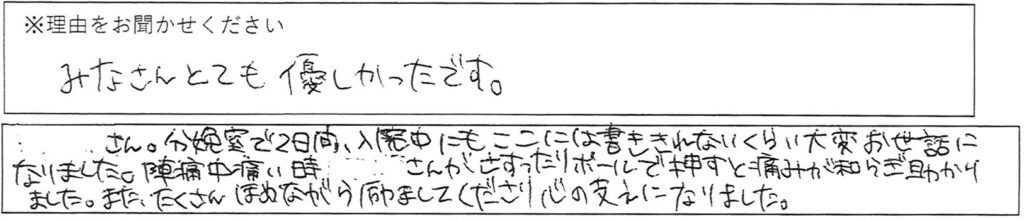 ※理由をお聞かせください
みなさんとても優しかったです。
さん。分娩室で2日間、入院中にもここには書ききれないくらい大変お世話に
なりました。陣痛中痛い時 さんがさすったりボールで押すと痛みが和らぎ助かり
ました。また、たくさんほめながら励ましてくださり心の支えになりました。